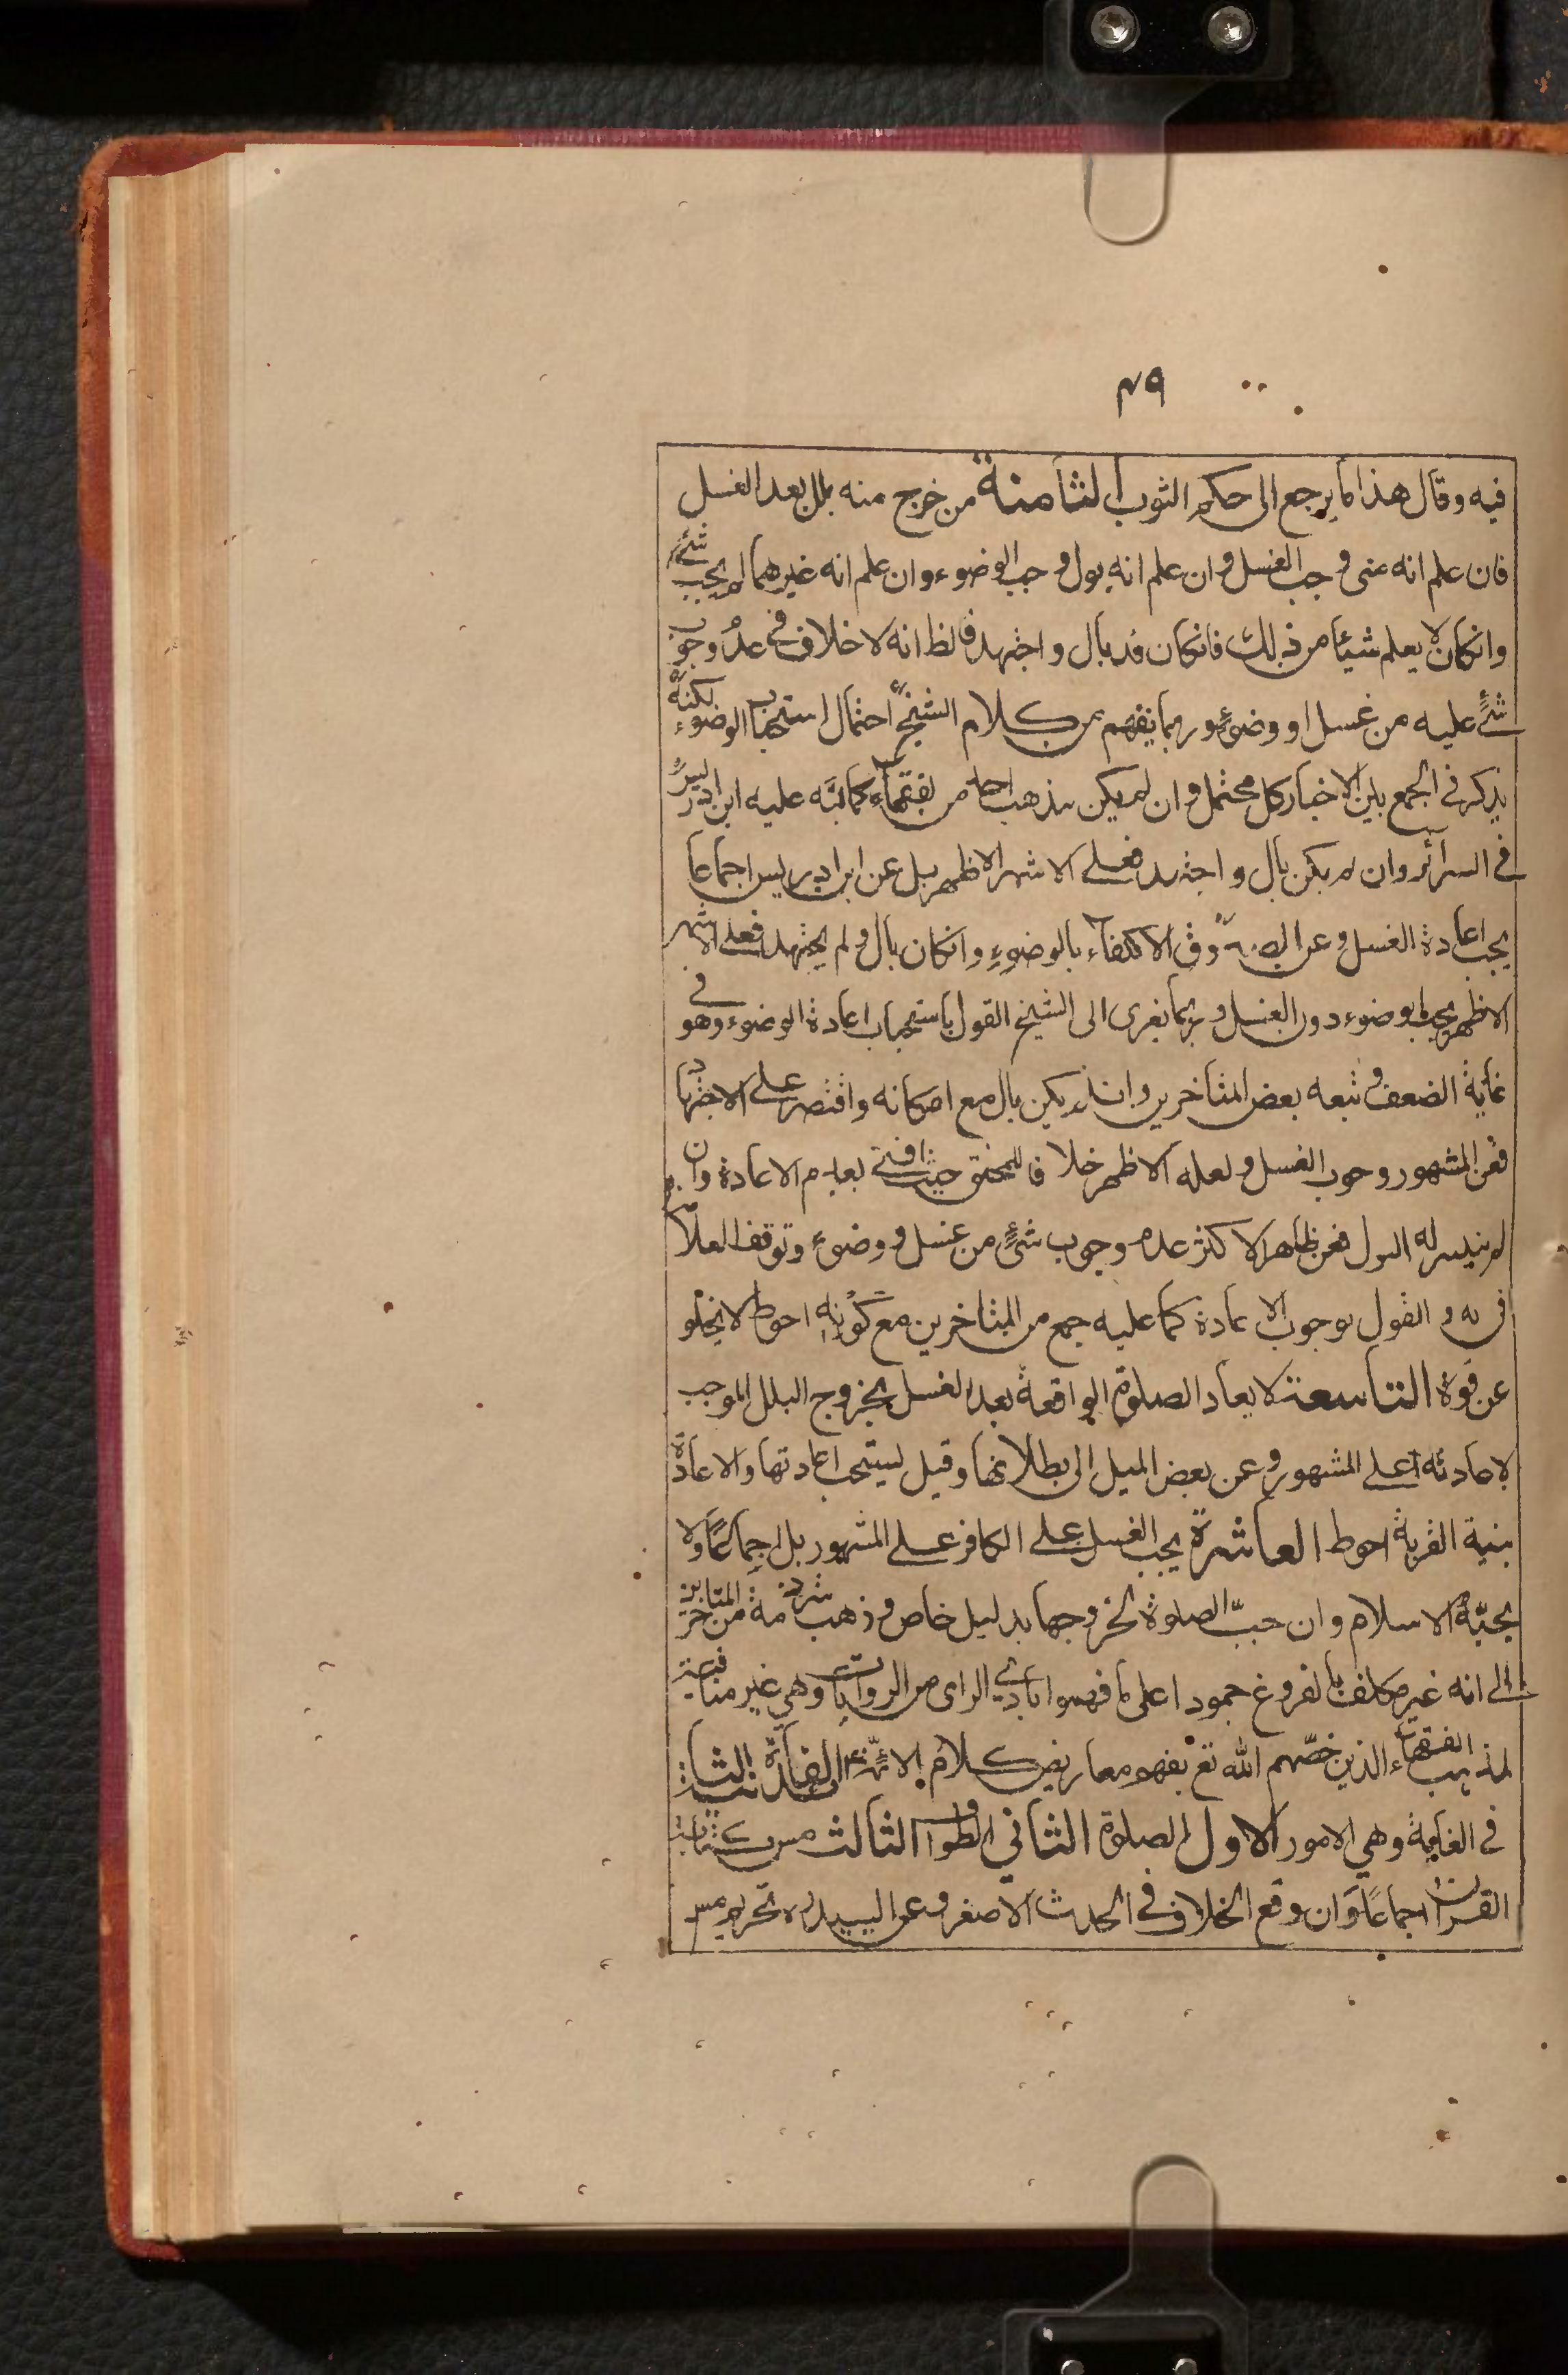 ٣٩
فيه وقال هذا ما يرجع الى حكم الثوب الثامنة من خرج منه بلل بعد الغسل
فان علم انه منى وجب الغسل وان علم انه بول وجب الوضوء وان علم انه غيرهما لم يجب شئ
وانكان لا يعلم شيئا من ذلك فانكان قد بال واجتهد فالظ انه لا خلاف في عدم وجوب
شئ عليه من غسل او وضوء وربما يفهم من كلام الشيخ احتمال استحباب الوضوء لكنه
يذكر في الجمع بين الاخبار كل محتمل وان لم يكن مذهب احد من الفقهاء كما نبه عليه ابن ادريس
في السرائر وان لم يكن بال واجتهد فعلى الاشهر الاظهر بل عن ابن ادريس اجماعا
يجب اعادة الغسل وعن الصدوق الاكتفاء بالوضوء وانكان بال ولم يجتهد فعلى الاشهر
الاظهر يجب الوضوء دون الغسل وربما يعزى الى الشيخ القول باستحباب اعادة الوضوء وهو في
غاية الضعف وتبعه بعض المتاخرين وان لم يكن بال مع امكانه واقتصر على الاجتهاد
فعن المشهور وجوب الغسل ولعله الاظهر خلافا للمحقق حيث افتى بعدم الاعادة وان
لم يتيسر له البول فعن ظاهر الاكثر عدم وجوب شئ من غسل ووضوء وتوقف العلامة
في يه والقول بوجوب الاعادة كما عليه جمع من المتاخرين مع كونه احوط لا يخلو
عن قوة التاسعة لا يعاد الصلوة الواقعة بعد الغسل بخروج البلل الموجب
لاعادته على المشهور وعن بعض الميل الى بطلانها وقيل يستحب اعادتها والاعادة
بنية القربة احوط العاشرة يجب الغسل على الكافر على المشهور بل اجماعا ولا
يجبّه الاسلام وان جبّ الصلوة لخروجها بدليل خاص وذهب شرذمة من المتاخرين
الى انه غير مكلف بالفروع جمودا على ما فهموا بادى الراى من الروايات وهي غير منافية
لمذهب الفقهاء الذين خصّهم الله تع بفهم معاريض كلام الائمّة ع الفائدة الثانية
في الغاية وهي الامور الاول الصلوة الثاني الطواف الثالث مس كتابة
القران اجماعا وان وقع الخلاف في الحدث الاصغر وعن السيد ره تحريم مس